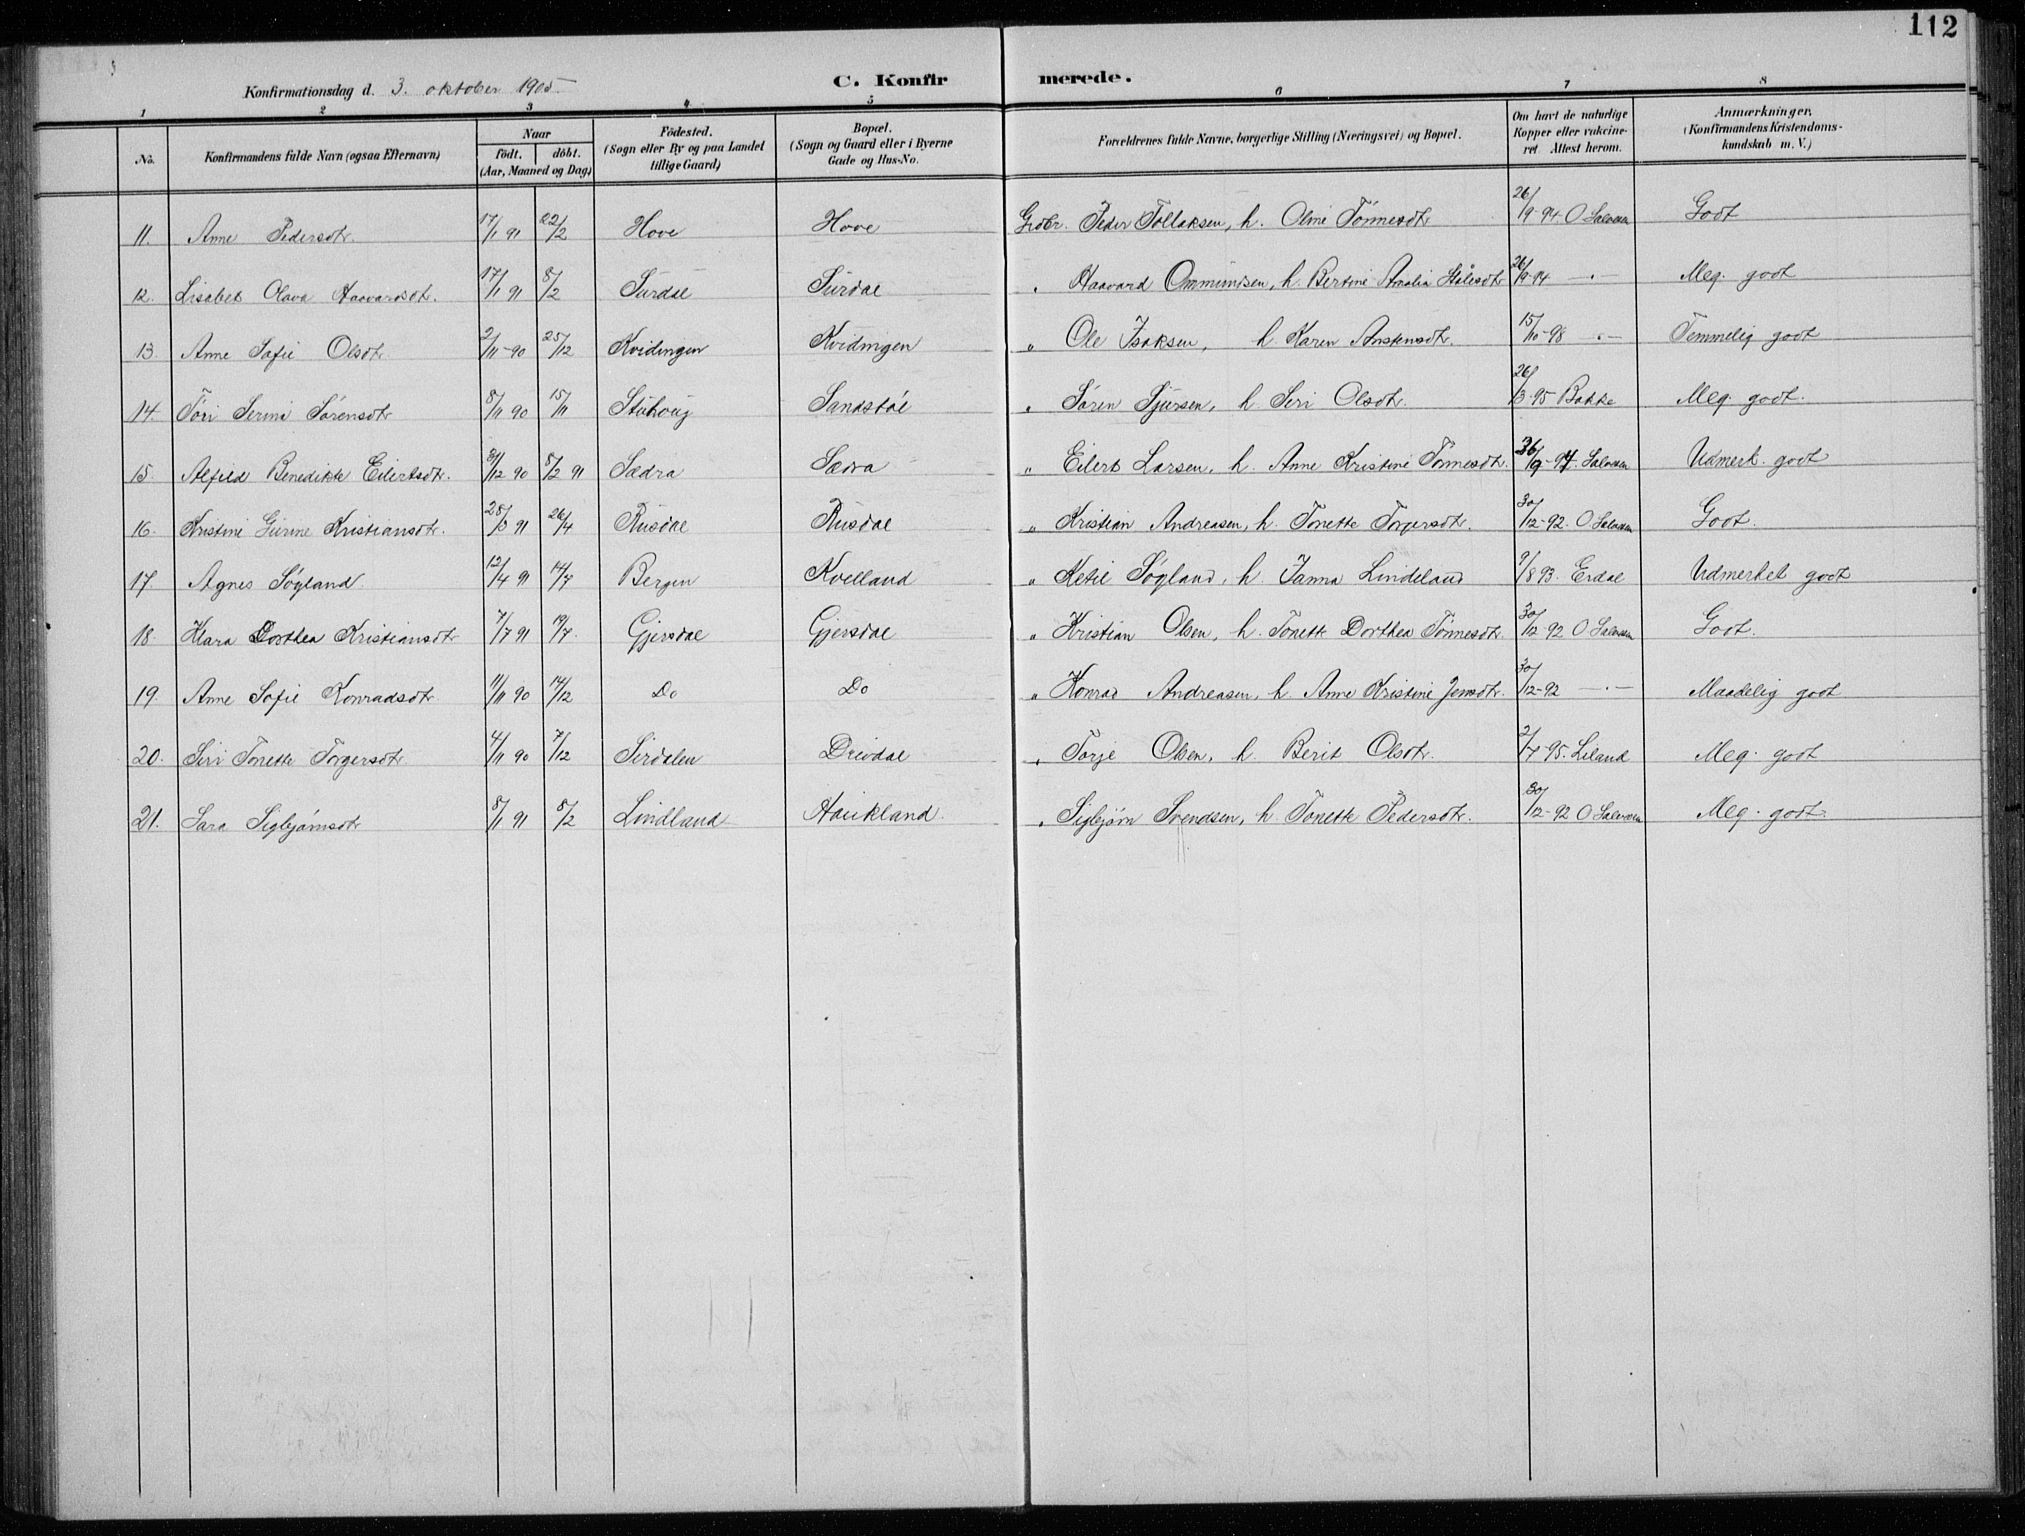 112
Konfirmationsdag d. 3. oktober 1905
C. Konfirmerede.
1 2 3 4 5 6 7 8
No. Konfirmandens fulde Navn (ogsaa Efternavn) Naar födt. döbt. (Aar, Maaned og Dag) Födested. (Sogn eller By og paa Landet tillige Gaard) Bopæl. (Sogn og Gaard eller i Byerne Gade og Hus-No. Forældrenes fulde Navne, borgerlige Stilling (Næringsvei) og Bopæl. Om havt de naturlige Kopper eller vakcineret Attest herom. Anmærkninger. (Konfirmandens Kristendomskundskab m. V.)
11. Anne Pedersdtr. 17/1 91 22/2 Hove Hove Grdbr. Peder Tollaksen, h. Oline Tönnesdtr 26/9-94 O Salvesen Godt
12. Lisabet Olava Haavardsdtr. 17/1 91 8/2 Surdal Surdal " Haavard Ommundsen, h. Bertine Amalia Stålesdtr 26/9-94 —"— Meg. godt
13. Anne Sofie Olsdtr 2/11-90 25/12 Kvidingen Kvidingen " Ole Isaksen, h. Karen Anstensdtr. 15/10-98 —"— Temmelig godt
14. Töri Serine Sörensdtr 8/11 90 15/11 Stuhoug Sandstöl " Sören Sjursen, h. Siri Olsdtr. 26/3-95 Bakke Meg. godt.
15. Alfild Benedikte Eilertsdtr. 31/12 90 8/2 91 Sædra Sædra " Eilert Larsen, h. Anne Kristine Tönnesdtr. 26/9-94. Salvesen Udmerk. godt
16. Kristine Gurine Kristiansdtr. 28/3 91 26/4 Rusdal Rusdal " Kristian Andreasen, h. Tonette Torgersdtr. 30/12-92. O Salvesen Godt.
17. Agnes Sögland 12/4 91 14/7 Bergen Kvelland " Ketil Sögland, h. Janna Lindeland 9/8 93. Erdal Udmerket godt
18. Klara Dorthea Kristiansdtr 7/7 91 19/7. Gjersdal Gjersdal " Kristian Olsen, h. Tonette Dorthea Tönnesdtr 30/12-92 O Salvesen Godt.
19. Anne Sofie Konradsdtr 11/11 90 14/12 Do Do " Konrad Andreasen, h. Anne Kristine Jensdtr. 30/12-92 —"— Maadelig godt
20. Siri Tonette Torgersdtr. 4/11 90 7/12 Sirdalen Drivdal " Torje Olsen, h. Berit Olsdtr. 2/7-95. Liland Meg. godt
21. Sara Sigbjörnsdtr 8/1 91 8/2 Lindland Haukland. " Sigbjörn Svendsen, h. Tonette Pedersdtr. 30/12-92 O Salvesen Meg. godt.